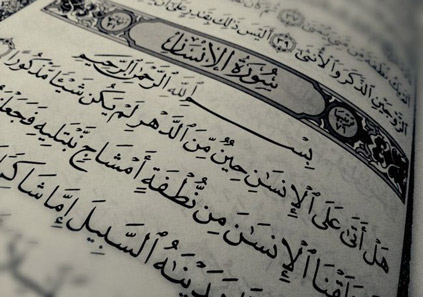 الزَّوْجَيْنِ ٱلذَّكَرَ وَٱلْأُنثَىٰٓ ٣٩ أَلَيْسَ ذَٰلِكَ بِقَٰدِرٍ عَلَىٰٓ
سُورَةُ الإِنسَانِ
بِسْمِ ٱللَّهِ ٱلرَّحْمَٰنِ ٱلرَّحِيمِ
هَلْ أَتَىٰ عَلَى ٱلْإِنسَٰنِ حِينٌ مِّنَ ٱلدَّهْرِ لَمْ يَكُن شَيْـًٔا مَّذْكُورًا
خَلَقْنَا ٱلْإِنسَٰنَ مِن نُّطْفَةٍ أَمْشَاجٍ نَّبْتَلِيهِ فَجَعَلْنَٰ
هَدَيْنَٰهُ ٱلسَّبِيلَ إِمَّا شَاكِرًا